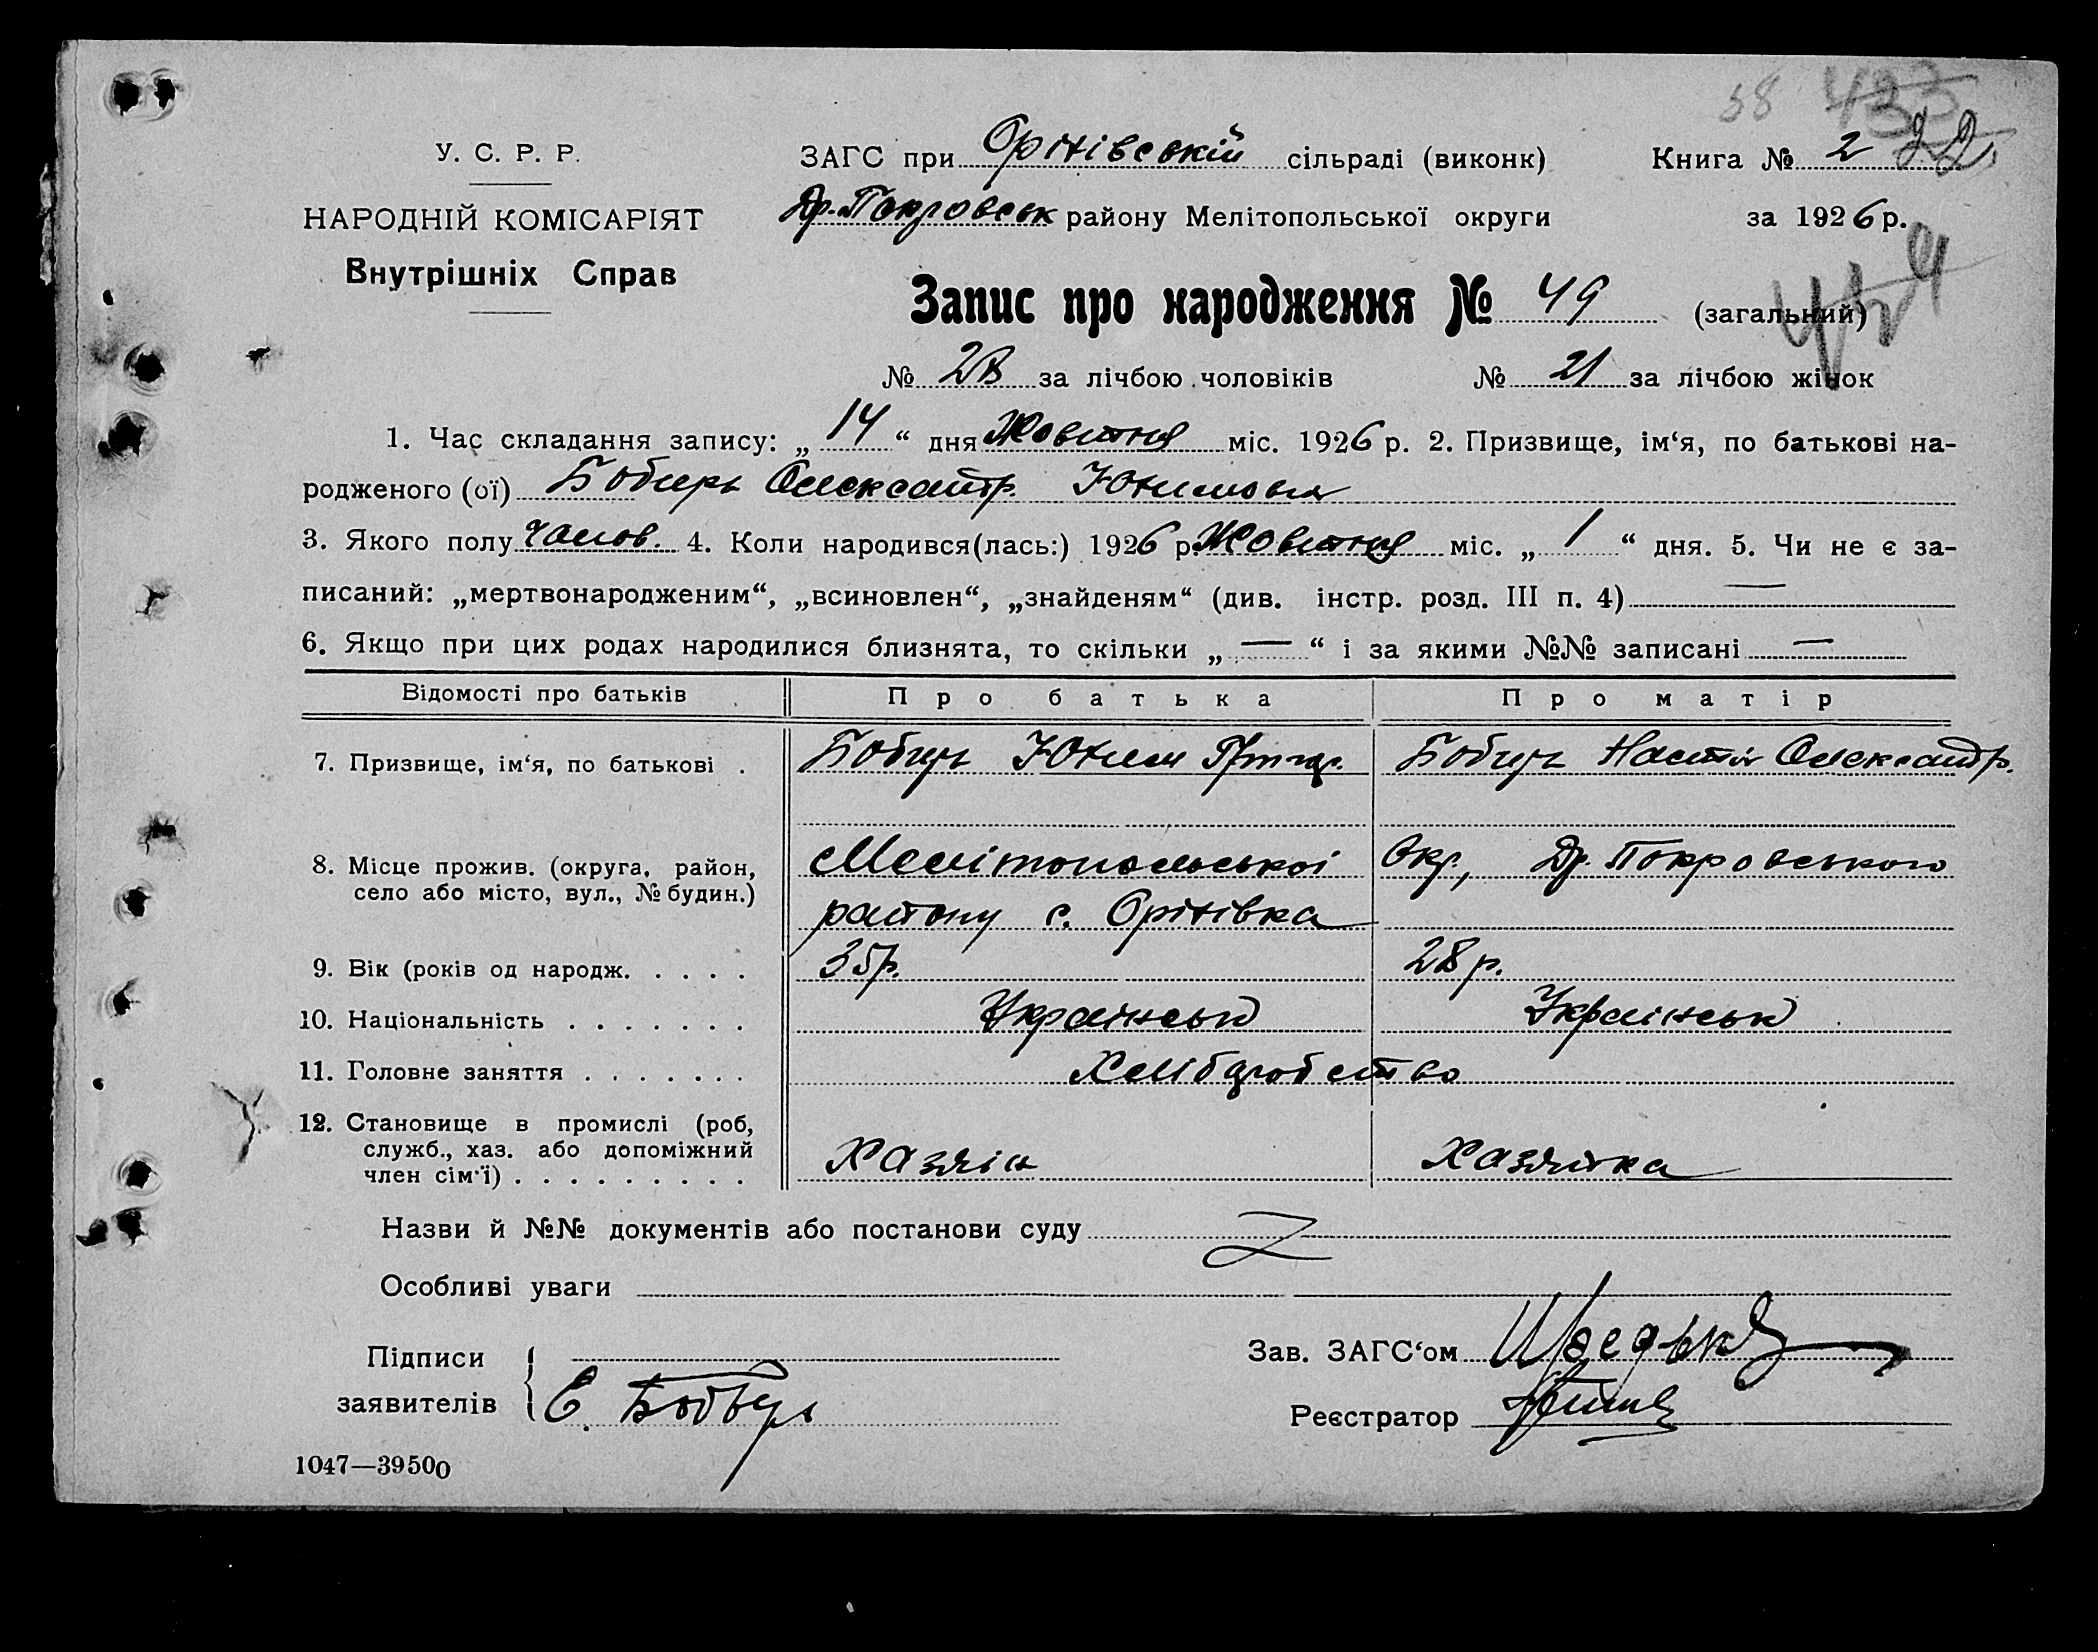 58 433
У. С. Р. Р. ЗАГС при Орінівській сільраді (виконк) Книга № 2 22
НАРОДНІЙ КОМІСАРІЯТ Др. Покровськ району Мелітопольської округи за 1926 р.
Внутрішніх Справ
Запис про народження № 49 (загальний)
№ 28 за лічбою чоловіків № 21 за лічбою жінок
1. Час складання запису: „ 14 “ дня Жовтня міс. 1926 р. 2. Призвище, ім‘я, по батькові на-
родженого (ої) Бобирь Олександр. Юхимовия
3. Якого полу чолов. 4. Коли народився(лась:) 1926 р. Жовтня міс. „ 1 “ дня. 5. Чи не є за-
писаний: „мертвонародженим“, „всиновлен“, „знайденям“ (див. інстр. розд. III п. 4) —
6. Якщо при цих родах народилися близнята, то скільки „ — “ і за якими №№ записані —
Відомості про батьків Про батька Про матір
7. Призвище, ім‘я, по батькові . Бобирь Юхим Григор. Бобирь Настя Олександр.
8. Місце прожив. (округа, район, Мелітопольської Окр., Др. Покровського
село або місто, вул., № будин.) району с. Орінівка
9. Вік (років од народж. . . . . 35р. 28 р.
10. Національність . . . . . . . Українськ Українськ
11. Головне заняття . . . . . . . Хлібдробство
12. Становище в промислі (роб,
служб., хаз. або допоміжний Хазяін Хазяйка
член сім‘ї) . . . . . . . . .
Назви й №№ документів або постанови суду
Особливі уваги
Підписи Зав. ЗАГС‘ом
заявителів Є. Бобырь Реєстратор
1047—39500